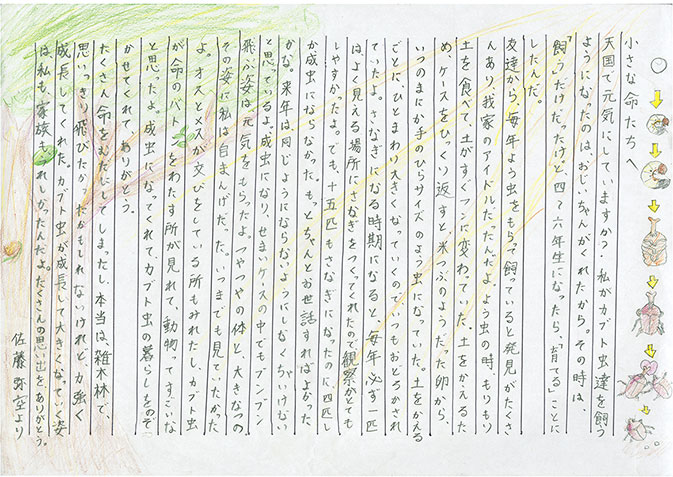 小さな命たちへ
天国で元気にしていますか？私がカブト虫達を飼う
ようになったのは、おじいちゃんがくれたから。その時は、
「飼う」だけだったけど、四～六年生になったら、「育てる」ことに
したんだ。
友達から、毎年よう虫をもらって飼っていると発見がたくさ
んあり、我家のアイドルだったんだよ。よう虫の時、もりもり
土を食べて、土がすぐフンに変わっていた。土をかえるた
め、ケースをひっくり返すと、米つぶのようだった卵から、
いつのまにか手のひらサイズのよう虫になっていた。土をかえる
ごとに、ひとまわり大きくなっていくので、いつもおどろかされ
ていたよ。さなぎになる時期になると、毎年必ず一匹
はよく見える場所にさなぎをつくってくれたので観察がとても
しやすかったよ。でも、十五匹もさなぎになったのに、四匹し
か成虫にならなかった。もっとちゃんとお世話すればよかった
かな。来年は、同じようにならないようにしなくちゃいけない
と思っているよ。成虫になり、せまいケースの中でもブンブン
飛ぶ姿は、元気をもらったよ。つやつやの体と、大きなつの
その姿に私は自まんげだった。いつまでも見ていたかった
よ。オスとメスが交びをしている所もみれたし、カブト虫
が命のバトンをわたす所が見れて、動物ってすごいな
と思ったよ。成虫になってくれて、カブト虫の暮らしをのぞ
かせてくれて、ありがとう。
たくさん命をむだにしてしまったし、本当は、雑木林で、
思いっきり飛びたかったかもしれないけれど、力強く
成長してくれた。カブト虫が成長して大きくなっていく姿
は、私も、家族もうれしかったんだよ。たくさんの思い出を、ありがとう。
佐藤弥空より